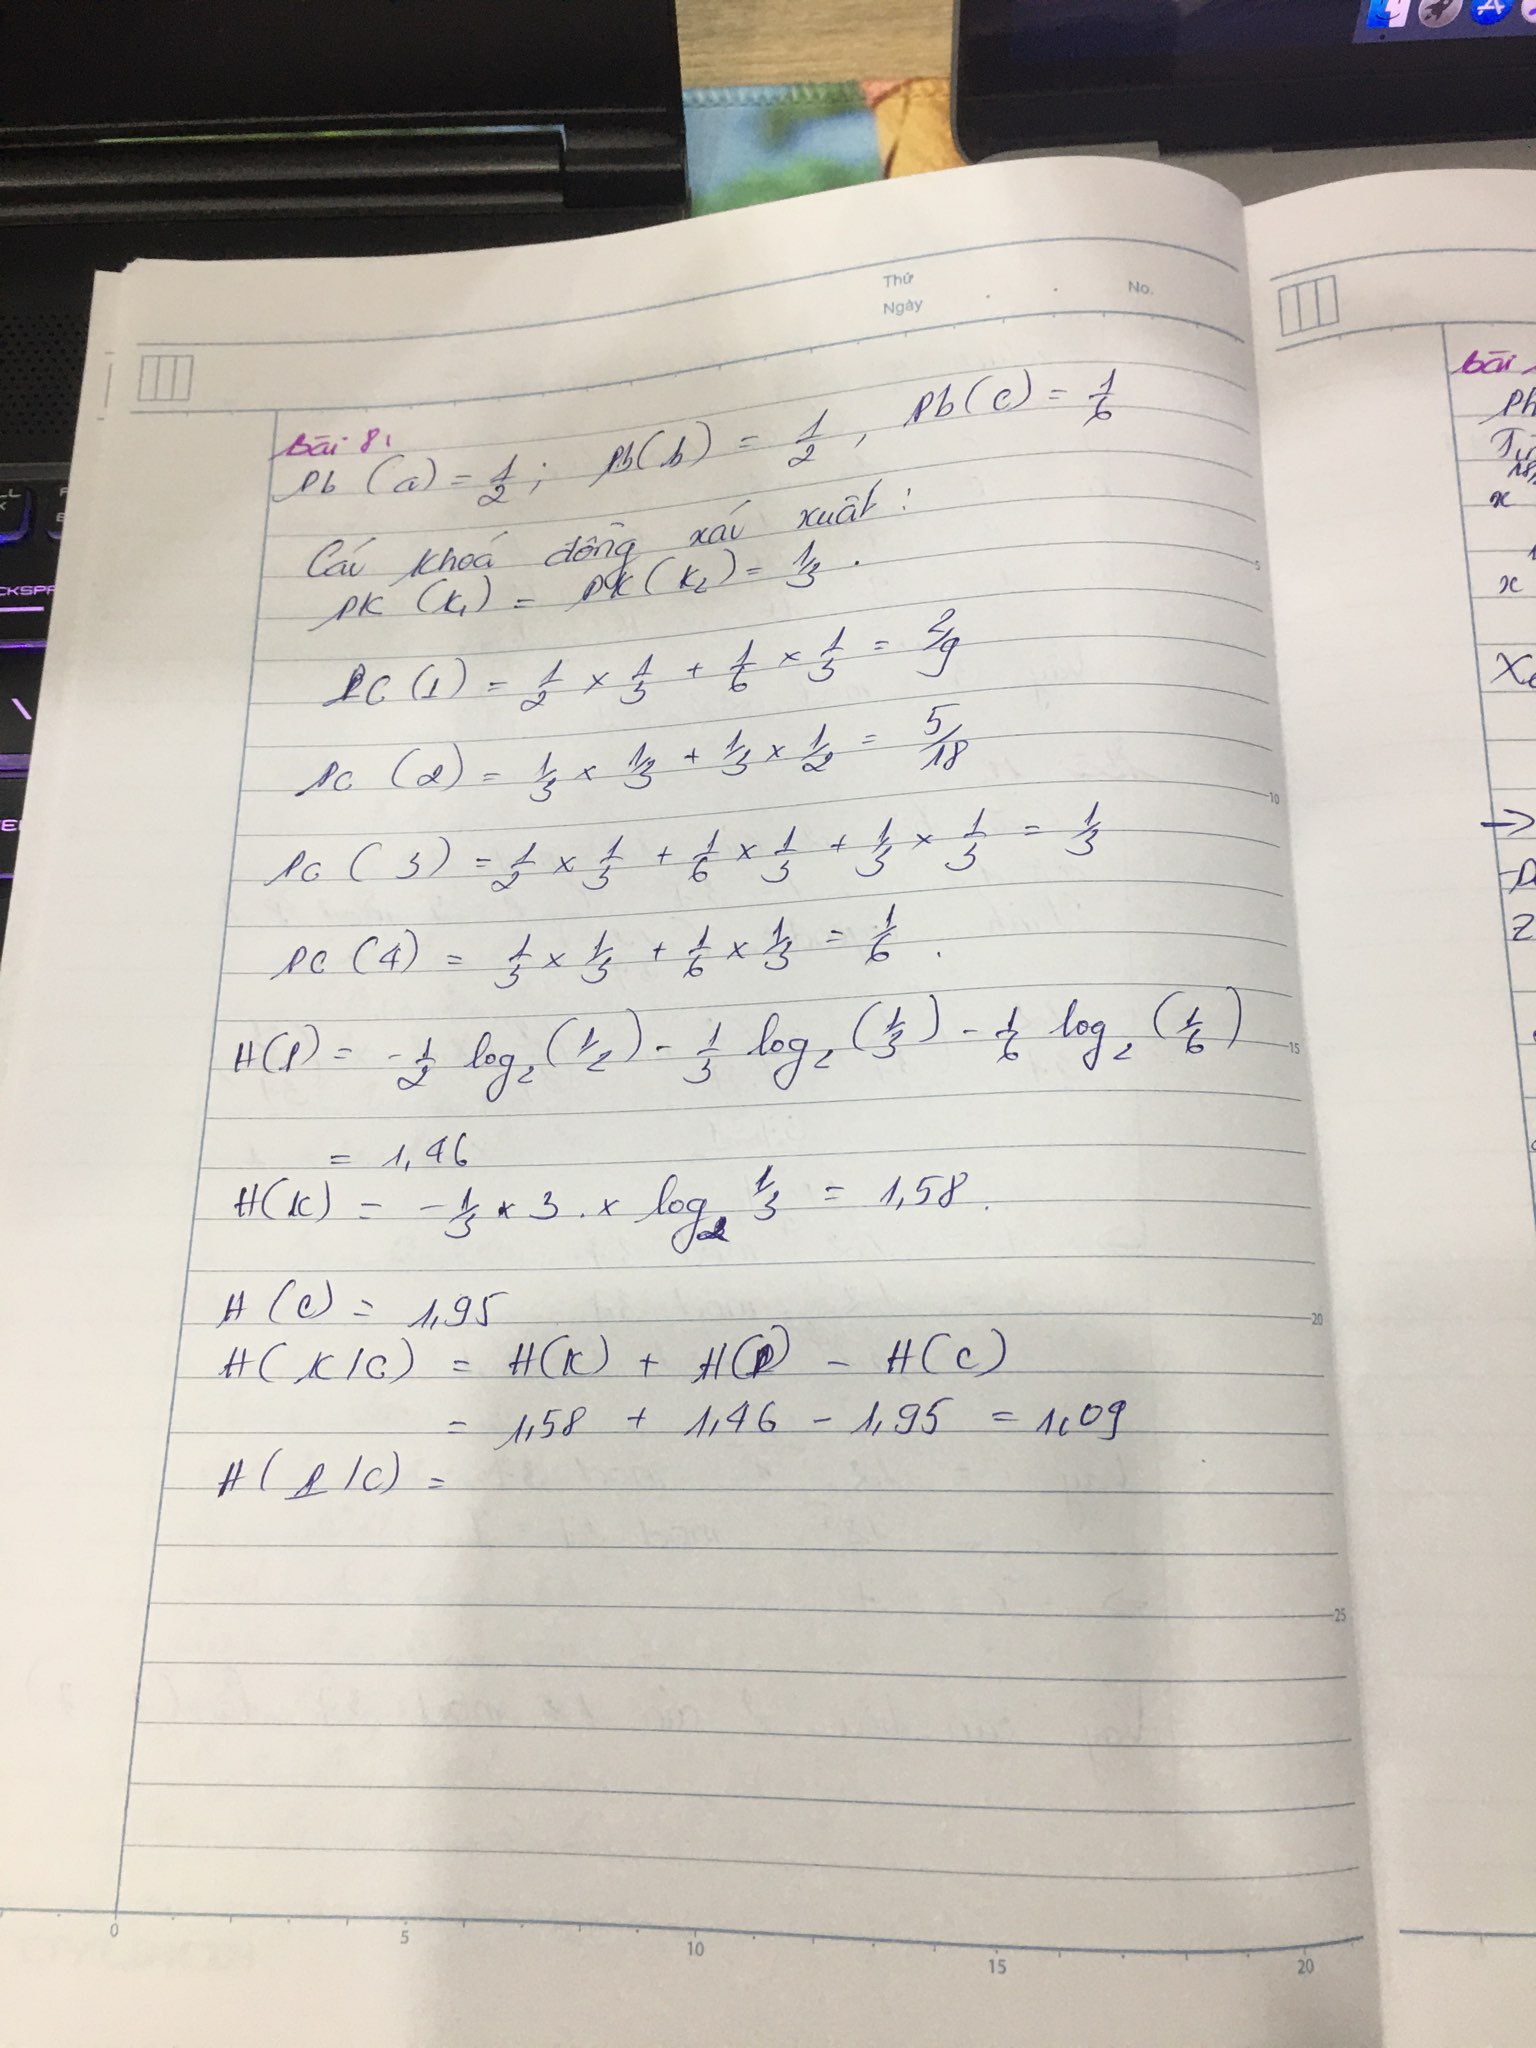 Thứ
Ngày
No.
Bài 8:
Pb (a) = 1/2 ; Pb(b) = 1/2 , Pb(c) = 1/6
Các khoá đồng xác xuất :
PK (K1) = PK(K2) = 1/3 .
PC (1) = 1/2 × 1/3 + 1/6 × 1/3 = 2/9
PC (2) = 1/3 × 1/3 + 1/3 × 1/2 = 5/18
PC (3) = 1/2 × 1/3 + 1/6 × 1/3 + 1/3 × 1/3 = 1/3
PC (4) = 1/3 × 1/3 + 1/6 × 1/3 = 1/6 .
H(P) = -1/2 log2 (1/2) - 1/3 log2 (1/3) - 1/6 log2 (1/6)
= 1,46
H(K) = -1/3 × 3 . × log2 1/3 = 1,58 .
H (C) = 1,95
H( K/C) = H(K) + H(P) - H(C)
= 1,58 + 1,46 - 1,95 = 1,09
H ( P /C) =
5
10
15
20
25
0 5 10 15 20
bài
Ph
x
x
→